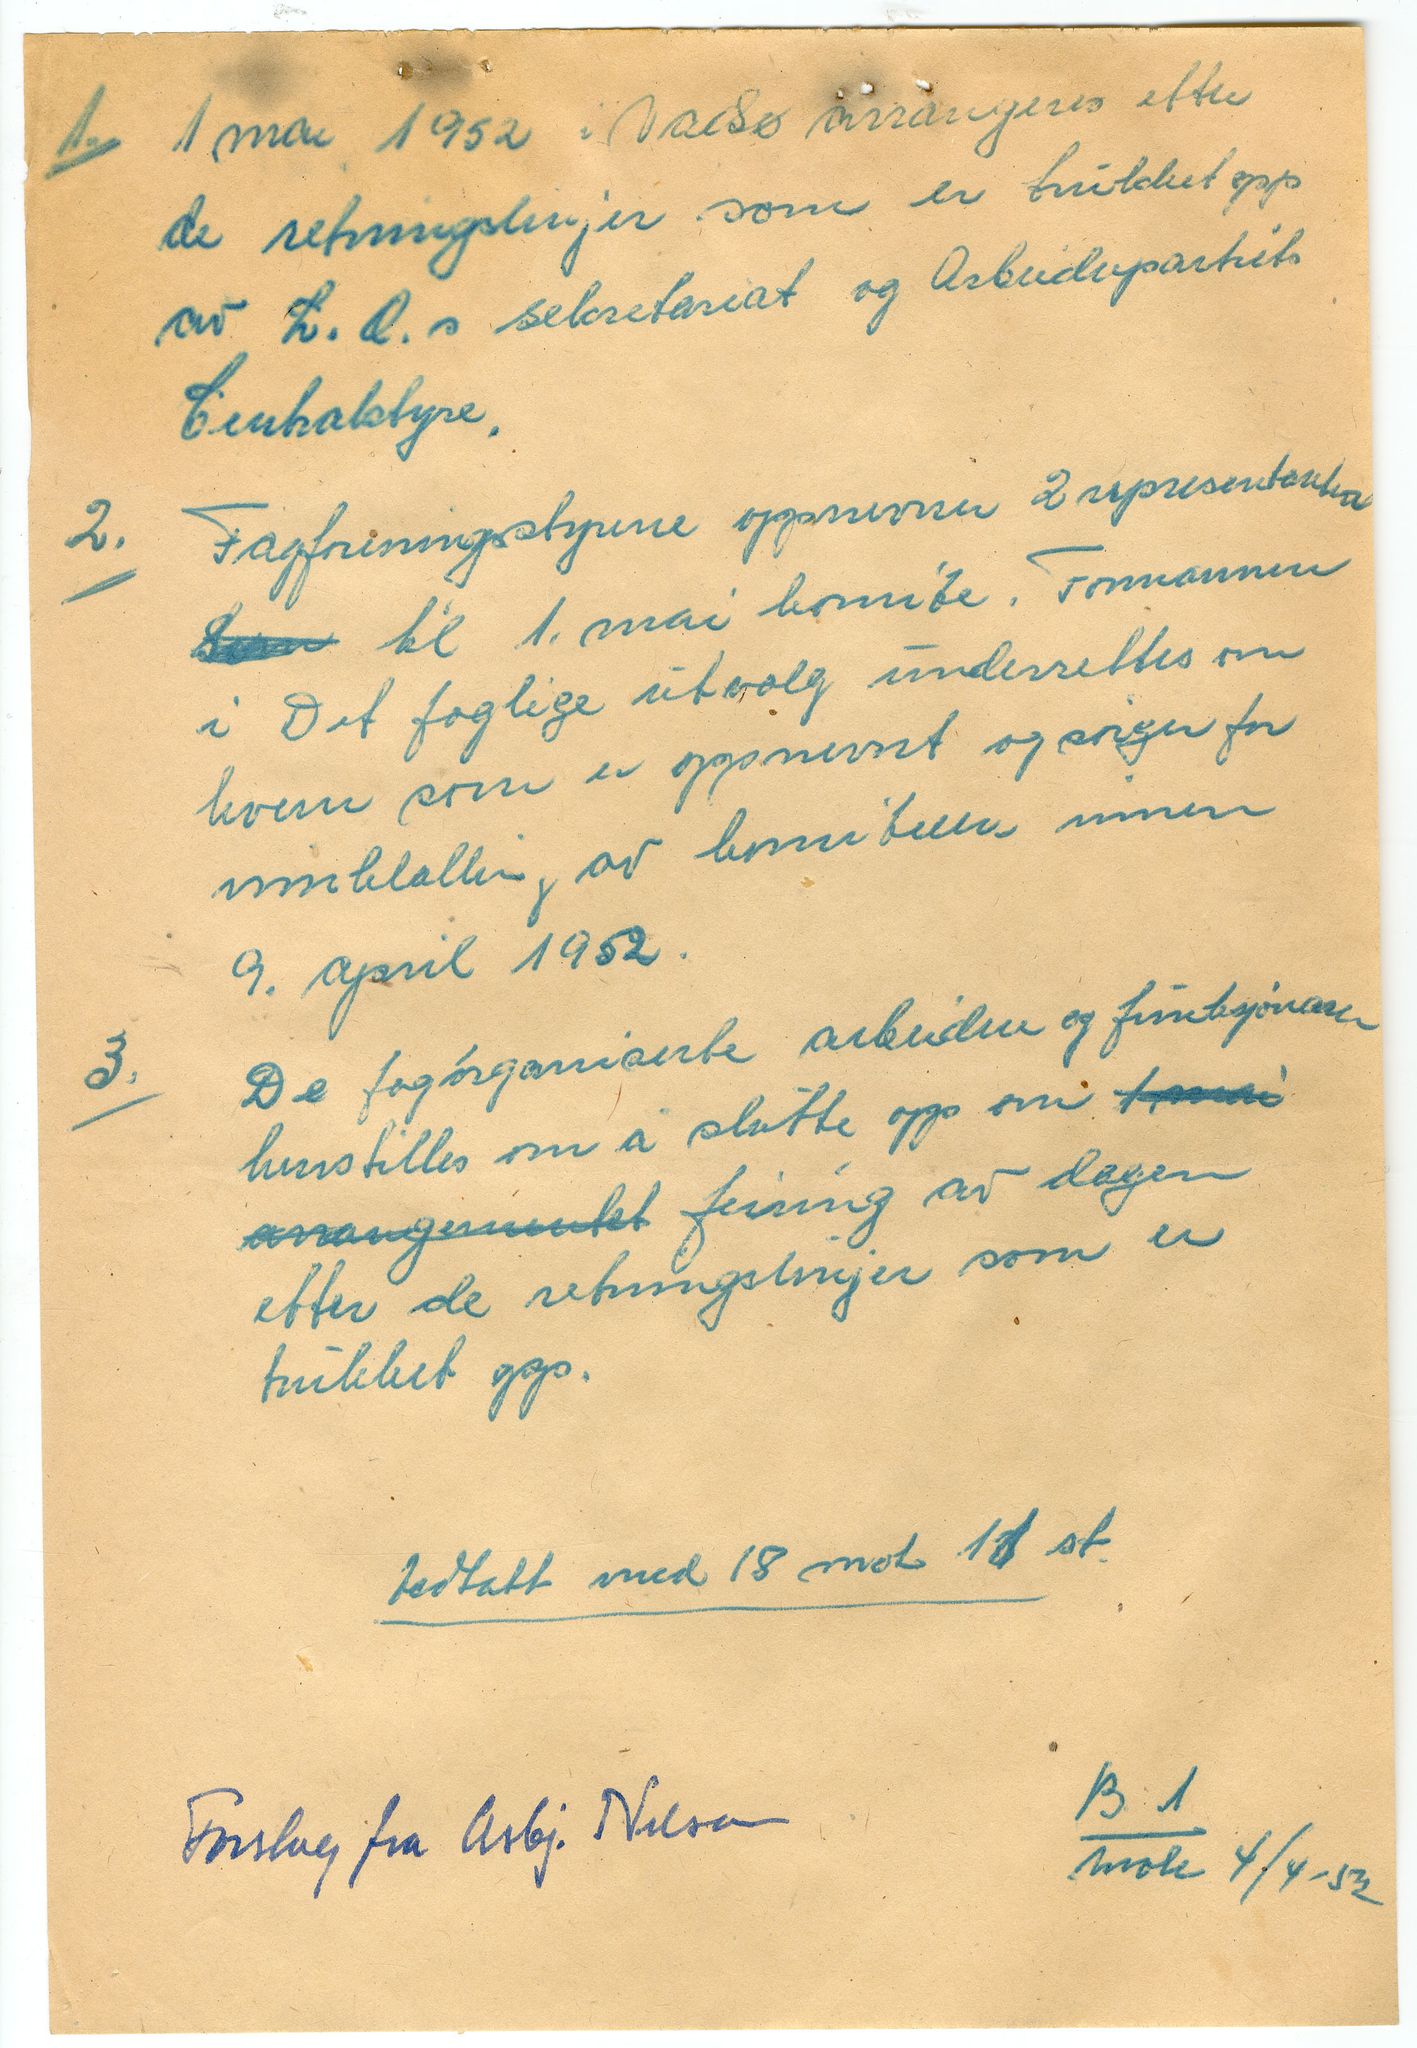 1. 1 mai 1952 i Vadsø arrangeres etter
de retningslinjer som er trukket opp
av L.O.s sekretariat og Arbeiderpartiets
Centralstyre.
2. Fagforeningsstyrene oppnevner 2 representanter
til 1. mai komite. Formannen
i Det faglige utvalg underrettes om
hvem som er oppnevnt og sørger for
innkalling av komiteen innen
9. april 1952.
3. De fagorganiserte arbeidere og funksjonærer
henstilles om å slutte opp om 1. mai
arrangementet feiring av dagen
etter de retningslinjer som er
trukket opp.
Vedtatt med 18 mot 11 st.
Forslag fra Asbj. Nilsen
B 1
møte 4/4-52